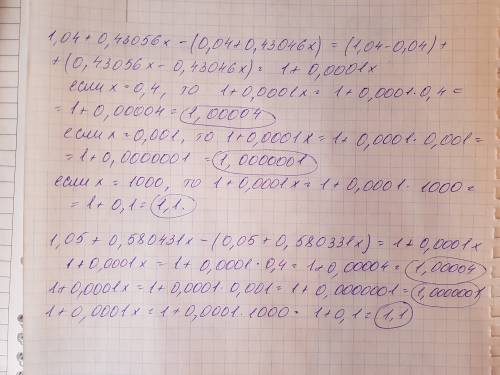 1,04 + 0,43056x - (0,04 + 0,43046x) = (1,04 - 0,04) +
+ (0,43056x - 0,43046x) = 1 + 0,0001x
если x = 0,4, то 1 + 0,0001x = 1 + 0,0001 · 0,4 =
= 1 + 0,00004 = 1,00004
если x = 0,001, то 1 + 0,0001x = 1 + 0,0001 · 0,001 =
= 1 + 0,0000001 = 1,0000001
если x = 1000, то 1 + 0,0001x = 1 + 0,0001 · 1000 =
= 1 + 0,1 = 1,1.
1,05 + 0,580431x - (0,05 + 0,580331x) = 1 + 0,0001x
1 + 0,0001x = 1 + 0,0001 · 0,4 = 1 + 0,00004 = 1,00004
1 + 0,0001x = 1 + 0,0001 · 0,001 = 1 + 0,0000001 = 1,0000001
1 + 0,0001x = 1 + 0,0001 · 1000 = 1 + 0,1 = 1,1